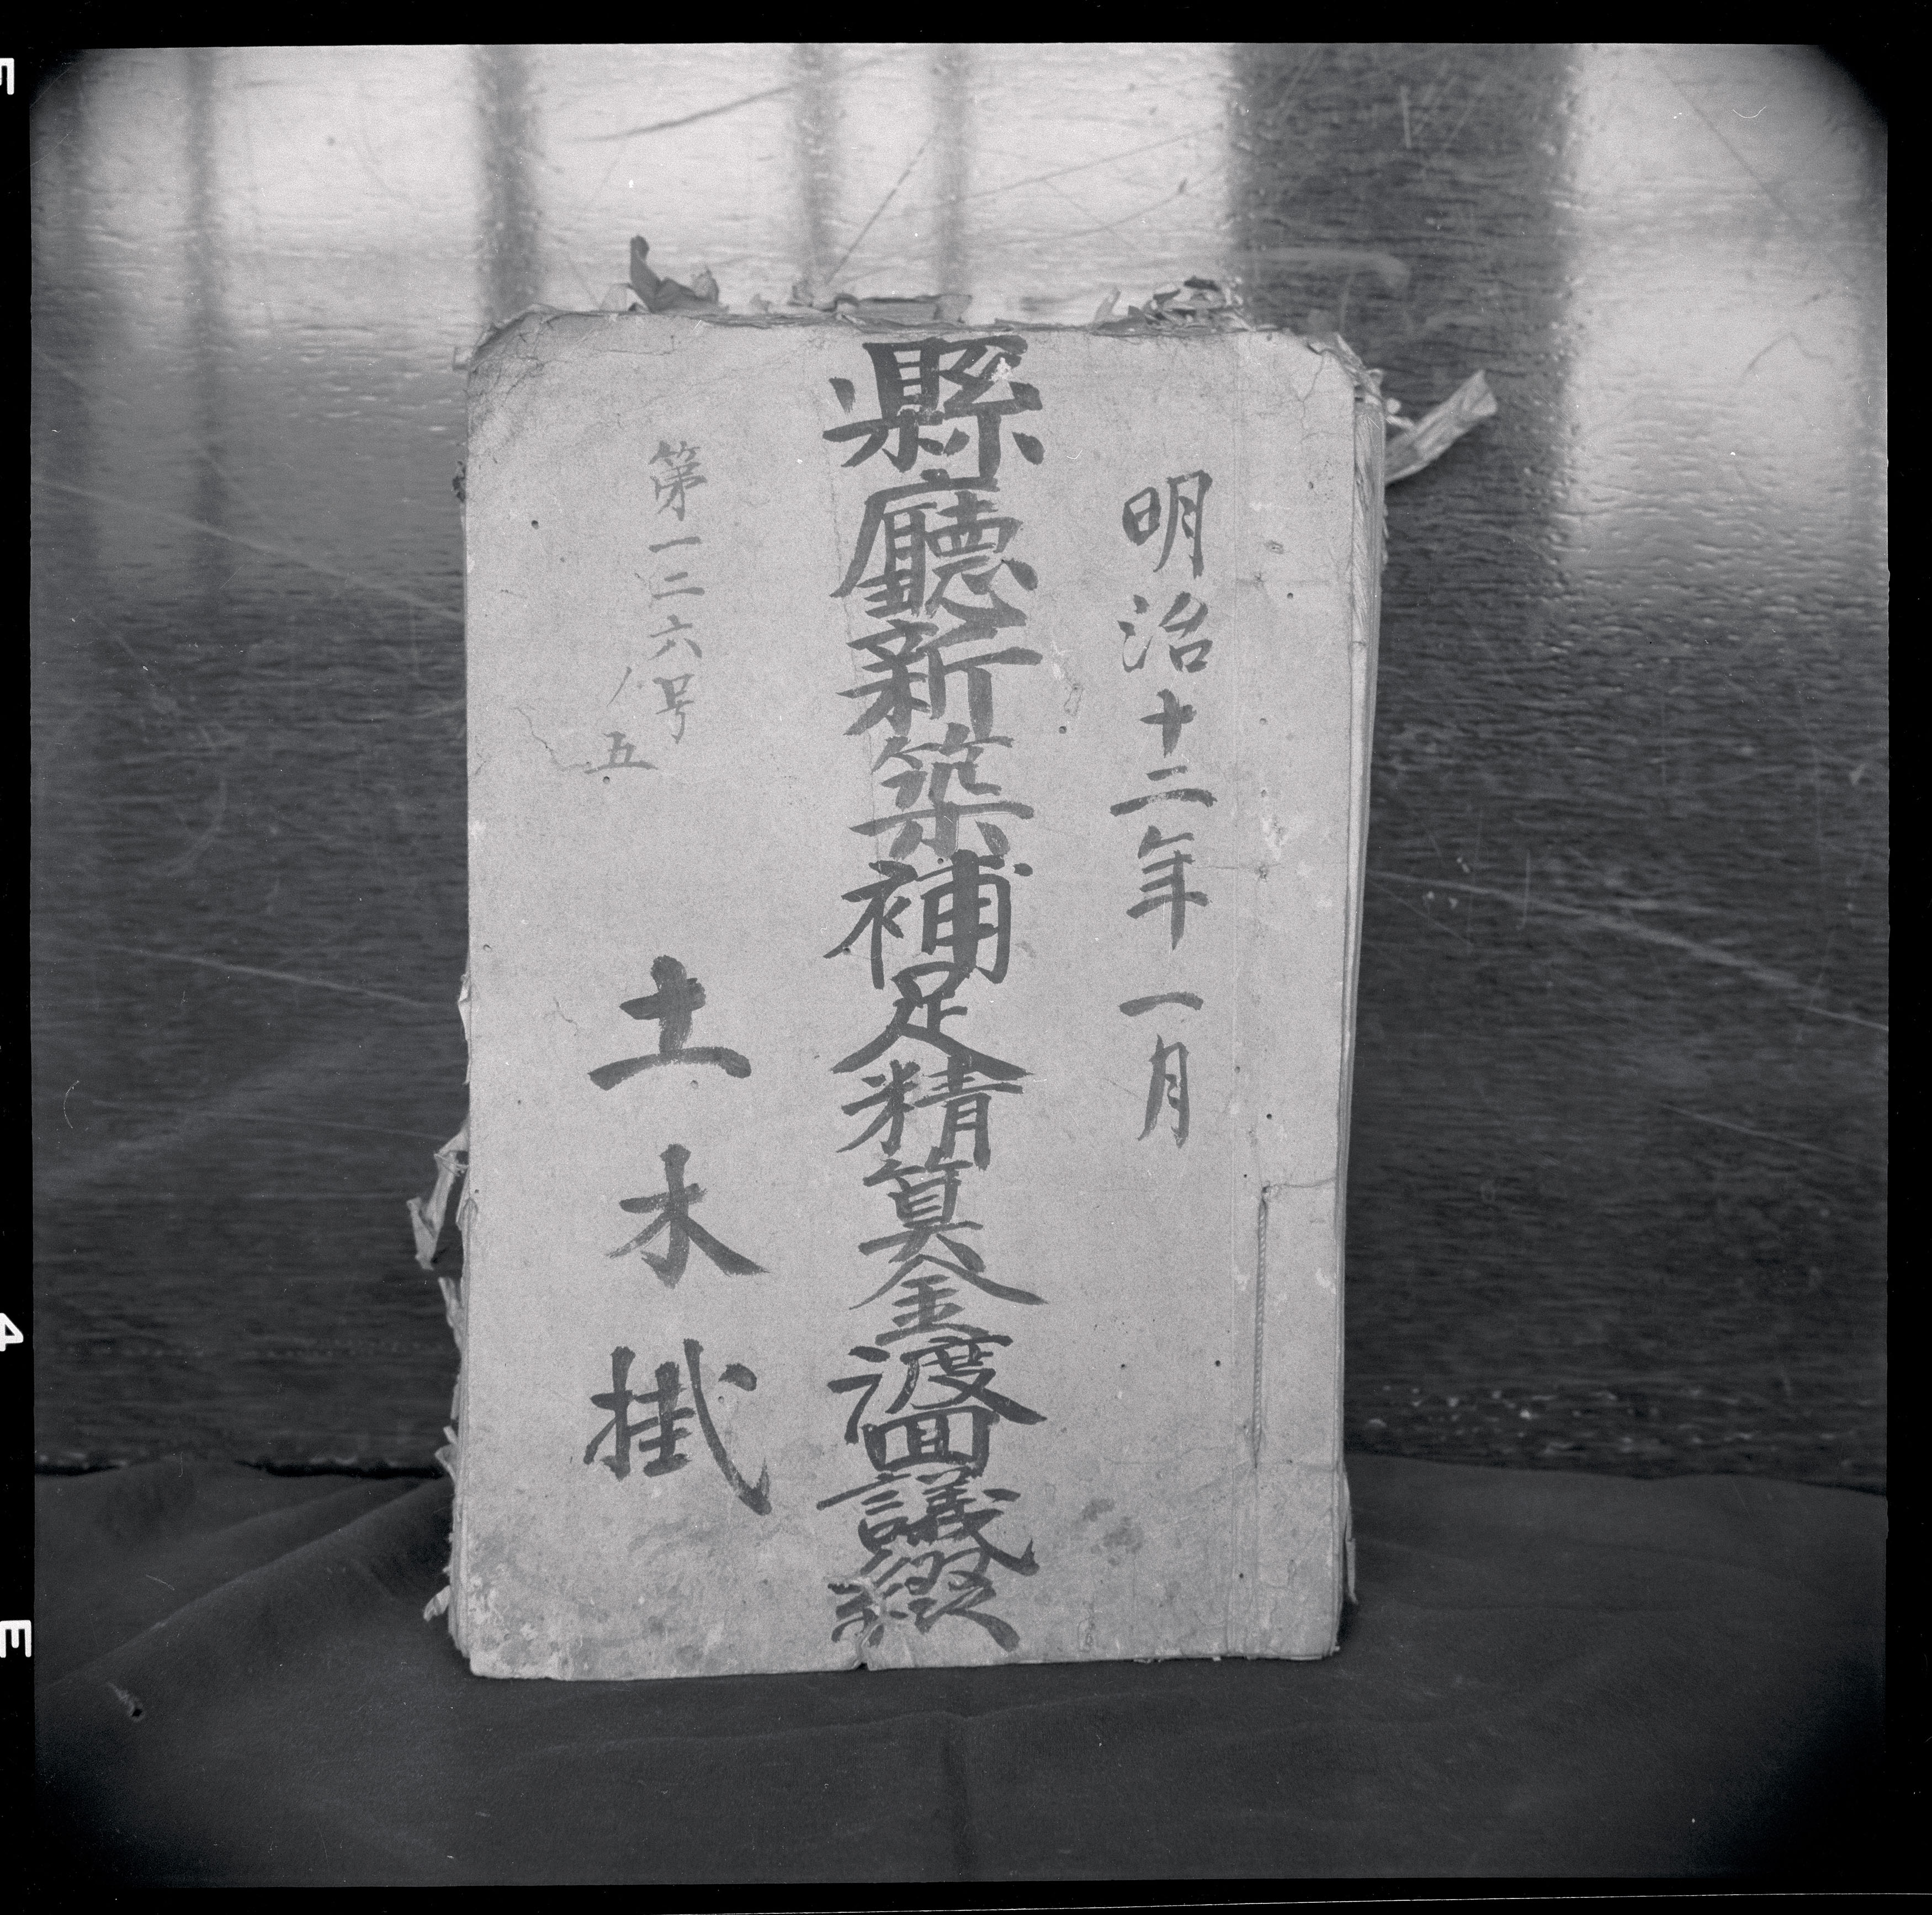 明治十二年一月
縣廳新築補足精算金渡回議綴
第一二六号
ノ五
土木掛